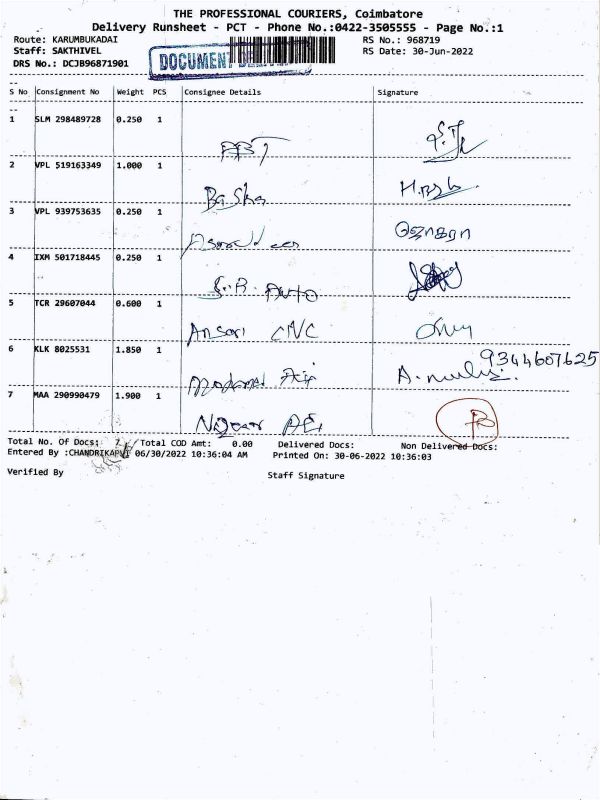 THE PROFESSIONAL COURIERS, Coimbatore
Delivery Runsheet - PCT - Phone No.:0422-3505555 - Page No.:1
Route: KARUMBUKADAI RS No.: 968719
Staff: SAKTHIVEL RS Date: 30-Jun-2022
DRS No.: DCJB96871901
DOCUMENT
S No Consignment No Weight PCS Consignee Details Signature
1 SLM 298489728 0.250 1
2 VPL 519163349 1.000 1
3 VPL 939753635 0.250 1
ஜொகரா
4 IXM 501718445 0.250 1
S.R. Auto
5 TCR 29607044 0.600 1
Ansari CNC
6 KLK 8025531 1.850 1
9344607625
7 MAA 290990479 1.900 1
Total No. Of Docs: 7 Total COD Amt: 0.00 Delivered Docs: Non Delivered Docs:
Entered By :CHANDRIKAPVT 06/30/2022 10:36:04 AM Printed On: 30-06-2022 10:36:03
Verified By Staff Signature